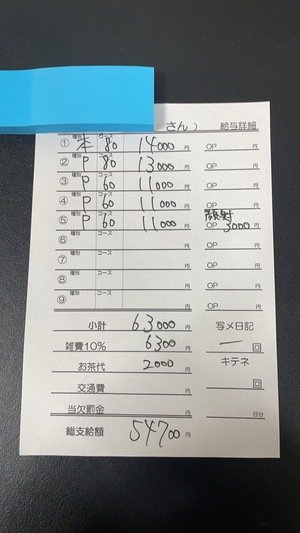 さん） 給与詳細
① 種別 本 コース 80 14000 円 OP 円
② 種別 P コース 80 13000 円 OP 円
③ 種別 P コース 60 11000 円 OP 円
④ 種別 P コース 60 11000 円 OP 円
⑤ 種別 P コース 60 11000 円 OP 顔射 3000 円
⑥ 種別 コース 円 OP 円
⑦ 種別 コース 円 OP 円
⑧ 種別 コース 円 OP 円
⑨ 種別 コース 円 OP 円
小計 63000 円 写メ日記
雑費10% 6300 円 ー 回
お茶代 2000 円 キテネ
交通費 円 回
当欠罰金 円 日分
総支給額 54700 円